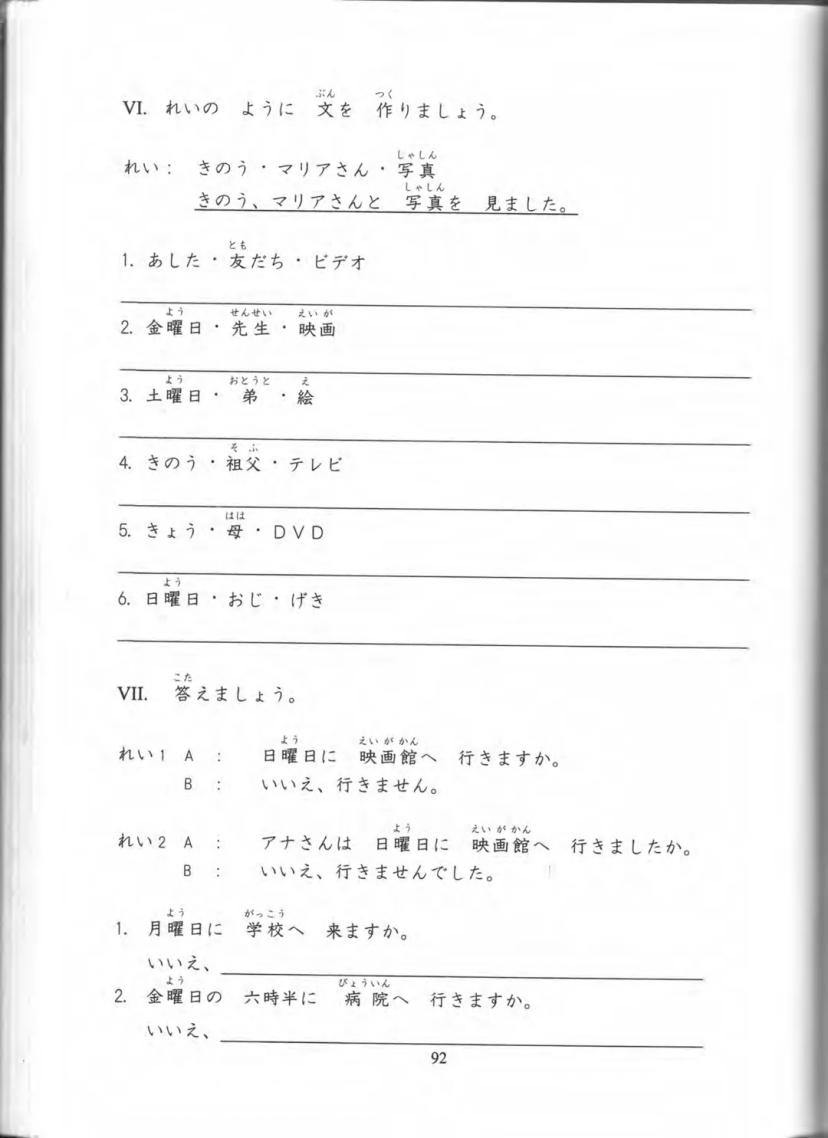 VI. れいの ように 文を 作りましょう。
れい： きのう・マリアさん・写真
きのう、マリアさんと 写真を 見ました。
1. あした・友だち・ビデオ
2. 金曜日・先生・映画
3. 土曜日・弟・絵
4. きのう・祖父・テレビ
5. きょう・母・ＤＶＤ
6. 日曜日・おじ・げき
VII. 答えましょう。
れい1 A ： 日曜日に 映画館へ 行きますか。
B ： いいえ、行きません。
れい2 A ： アナさんは 日曜日に 映画館へ 行きましたか。
B ： いいえ、行きませんでした。
1. 月曜日に 学校へ 来ますか。
いいえ、
2. 金曜日の 六時半に 病院へ 行きますか。
いいえ、
92